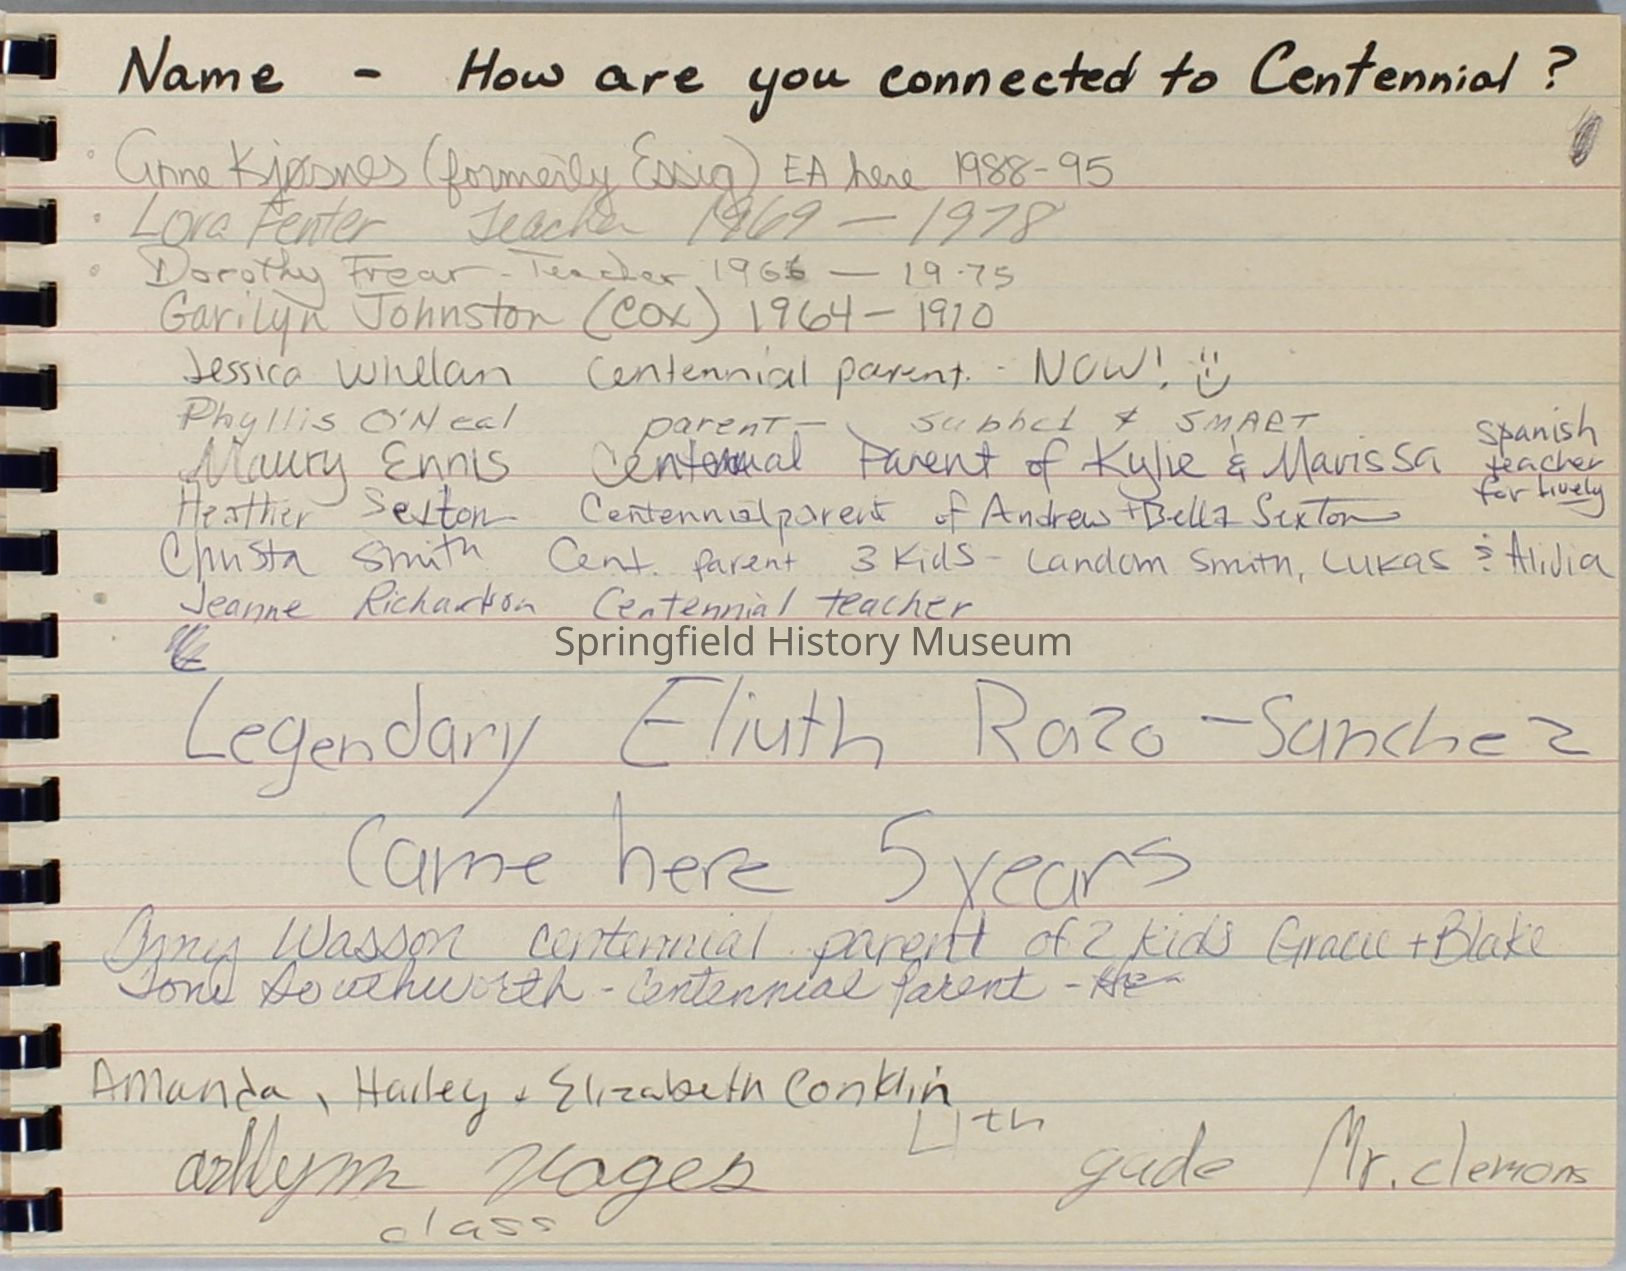 Name - How are you connected to Centennial ?
Anne Kjosnes (formerly Essig) EA here 1988-95
Lora Fenter Teacher 1969 - 1978
Dorothy Frear - Teacher 1966 - 19.75
Garilyn Johnston (Cox) 1964 - 1970
Jessica Whelan Centennial parent. - NOW! :)
Phyllis O'Neal parent - & SMART
Maury Ennis Centennial Parent of Kylie & Marissa
Spanish
teacher
for Lively
Heather Sexton Centennial parent of Andrew + Bella Sexton
Christa Smith Cent. parent 3 Kids - Landom Smith, Lukas & Alivia
Jeanne Richardson Centennial teacher
Springfield History Museum
Legendary Eliuth Razo - Sanchez
Came here 5 years
Amy Wasson Centennial parent of 2 kids Gracie + Blake
Southworth - Centennial Parent -
Amanda, Hailey & Elizabeth Conklin
4th
gade Mr. clemons
class